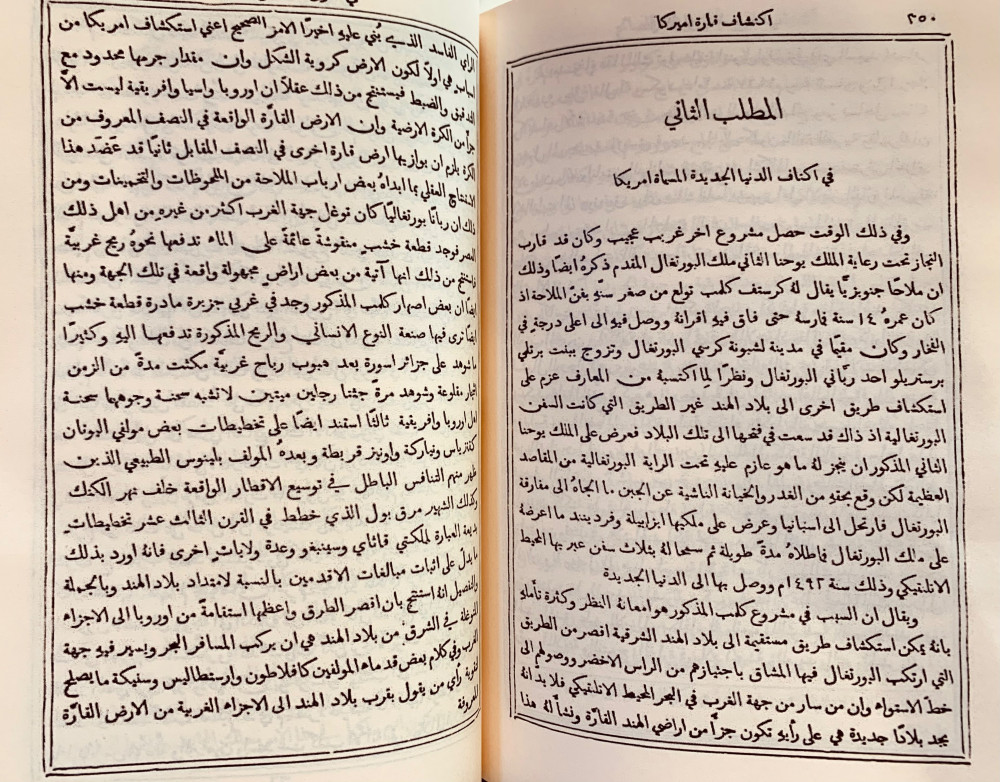 ٢٥٠
اكتشاف قارة اميركا
المطلب الثاني
في اكتاف الدنيا الجديدة المسماة امريكا
وفي ذلك الوقت حصل مشروع اخر غريب عجيب وكان قد قارب
النجاز تحت رعاية الملك يوحنا الثاني ملك البورتغال المقدم ذكرهُ ايضًا وذلك
ان ملاحًا جنويزيًّا يقال لهُ كرستف كلمب تولع من صغر سنّهِ بفنّ الملاحة اذ
كان عمرهُ ١٤ سنة فمارسهُ حتى فاق فيهِ اقرانهُ ووصل فيهِ الى اعلى درجةٍ في
الفخار وكان مقيمًا في مدينة لشبونة كرسي البورتغال وتزوج ببنت برتلي
برستريلو احد ربّاني البورتغال ونظرًا لِما اكتسبهُ من المعارف عزم على
استكشاف طريق اخرى الى بلاد الهند غير الطريق التي كانت السفن
البورتغالية اذ ذاك قد سعت في فتحها الى تلك البلاد فعرض على الملك يوحنا
الثاني المذكور ان ينجز لهُ ما هو عازم عليهِ تحت الراية البورتغالية من المقاصد
العظيمة لكن وقع بحقهِ من الغدر والخيانة الناشية عن الجبن ما الجاهُ الى مفارقة
البورتغال فارتحل الى اسبانيا وعرض على ملكيها ايزابيلة وفرديـنند ما اعرضهُ
على ملك البورتغال فاطلاهُ مدةً طويلة ثم سمحا لهُ بثلاث سفن عبر بها المحيط
الاتلنتيكي وذلك سنة ١٤٩٢م ووصل بها الى الدنيا الجديدة
ويقال ان السبب في مشروع كلمب المذكور هو امعانهُ النظر وكثرة تأملهِ
بانهُ يمكن استكشاف طريق مستقيمة الى بلاد الهند الشرقية اقصر من الطريق
التي ارتكب البورتغال فيها المشاق باجتيازهم من الراس الاخضر ووصولهم الى
خطّ الاستواء وان من سار من جهة الغرب في البحر المحيط الاتلنتيكي فلا بد انهُ
يجد بلادًا جديدة هي على رأيهِ تكون جزأً من اراضي الهند القارّة ونشأ لهُ هذا
الراي الفاسد الذي بُني عليهِ اخيرًا الامر الصحيح اعني استكشاف امريكا من
اسباب هي اولًا لكون الارض كروية الشكل وان مقدار جرمها محدود مع
التدقيق والضبط فيستنتج من ذلك عقلًا ان اوروبا واسيا وافريقية ليست الّا
جزأً من الكرة الارضية وان الارض القارّة الواقعة في النصف المعروف من
الكرة يلزم ان يوازيها ارض قارة اخرى في النصف المقابل ثانيًا قد عَضَد هذا
الاستنتاج العقلي بما ابداهُ بعض ارباب الملاحة من الملحوظات والتخمينات ومن
ذلك ان ربانًا بورتغاليًّا كان توغل جهة الغرب اكثر من غيرهِ من اهل ذلك
العصر فوجد قطعة خشبٍ منقوشةً عائمةً على الماء تدفعها نحوهُ ريح غربيّة
فاستنتج من ذلك انها آتية من بعض اراضٍ مجهولة واقعة في تلك الجهة ومنها
ايضًا ان بعض اصهار كلمب المذكور وجد في غربي جزيرة مادرة قطعة خشب
ايضًا نرى فيها صنعة النوع الانساني والريح المذكورة تدفعها اليهِ وكثيرًا
ما شوهد على جزائر اسورة بعد هبوب رياح غربيّة مكثت مدةً من الزمن
اشجار مقلوعة وشوهد مرةً جثتا رجلين ميتين لا تشبه سحنة وجوههما سحنة
اهل اوروبا وافريقية ثالثًا استند ايضًا على تخطيطات بعض مولفي اليونان
كقتزياس ونياركة واونيز قريطة وبعدهُ المولف بلينوس الطبيعي الذين
ظهر منهم التنافس الباطل في توسيع الاقطار الواقعة خلف نهر الكنك
وكذلك الشهير مرق بول الذي خطط في القرن الثالث عشر تخطيطاتٍ
بديعة العبارة لمملكتي قاتاي وسينبغو وعدة ولاياتٍ اخرى فانهُ اورد بذلك
ما يدلّ على اثبات مبالغات الاقدمين بالنسبة لامتداد بلاد الهند وبالجملة
والتفصيل انهُ استنتج بان اقصر الطرق واعظمها استقامةً من اوروبا الى الاجزاء
المتوغلة في الشرق من بلاد الهند هي ان يركب المسافر البحر ويسير فيهِ جهة
الغرب وفي كلام بعض قدماء المولفين كافلاطون وارستطاليس وسنيكة ما يصلح
لتقوية رأي من يقول بقرب بلاد الهند الى الاجزاء الغربية من الارض القارّة
المعروفة